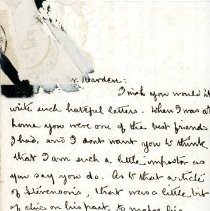 r. Harden:
I wish you would
write such hateful letters. When I was at
home you were one of the best friends
I had, and I dont want you to think
that I am such a little impostor as
you say you do. As to that article
of Stevenson's, that was a little bit
of his part, to make his